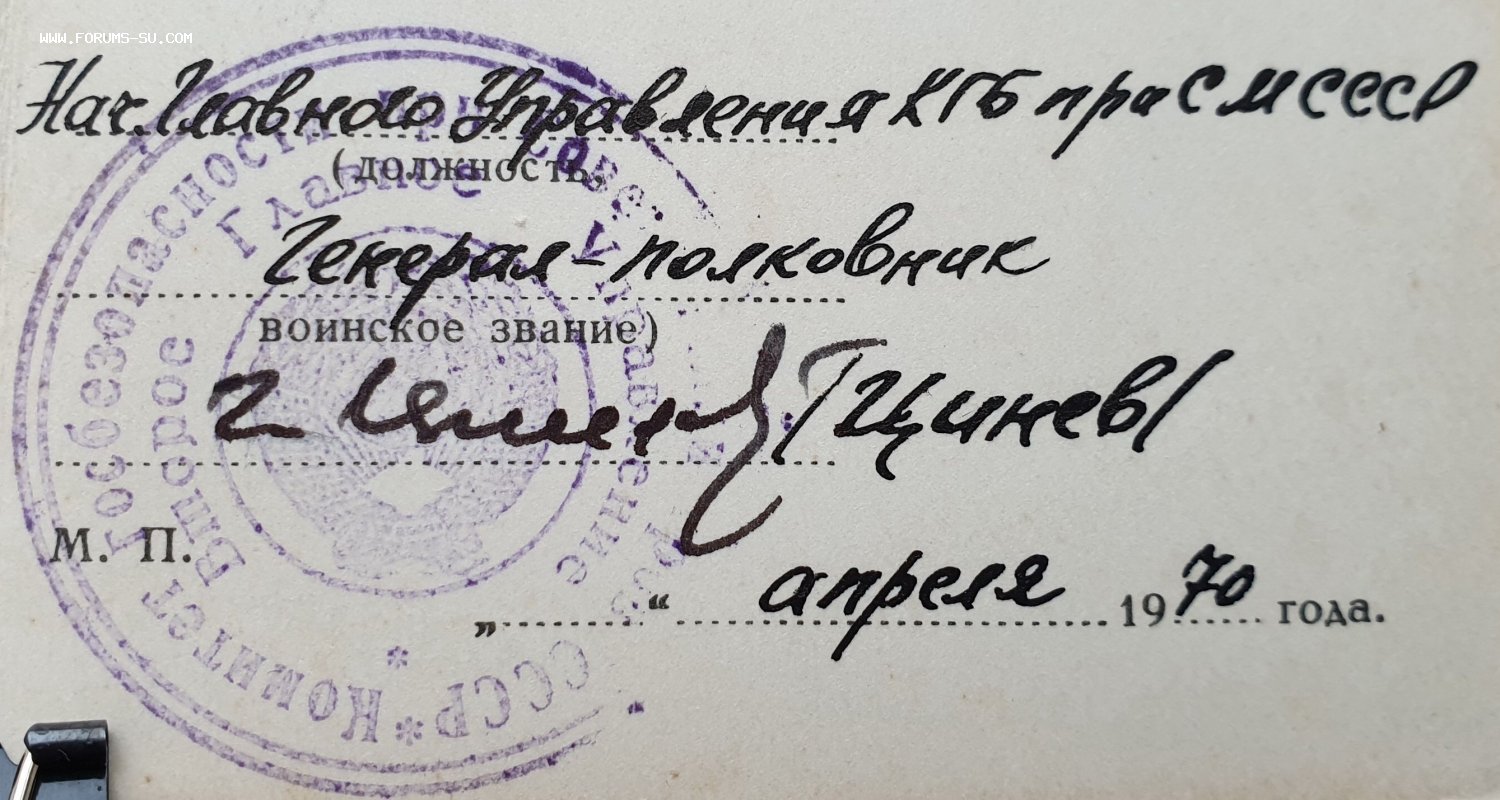 WWW.FORUMS-SU.COM
Нач. Главного Управления КГБ при СМ СССР
(должность,
Генерал-полковник
воинское звание)
/Цинев/
М. П.
„ “ апреля 1970 года.
Комитет Госбезопасности при Сове
СССР
Второе Главное Управление